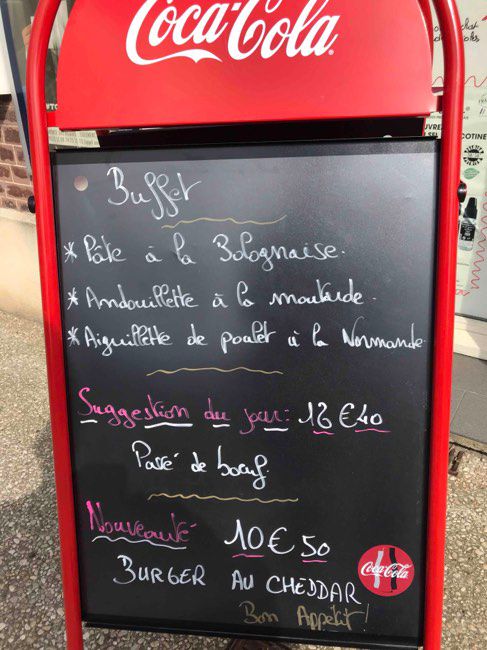 Coca-Cola
Buffet
* Pâte à la Bolognaise.
* Andouillette à la moutarde.
* Aiguillette de poulet à la Normande.
Suggestion du jour: 12€40
Pavé de boeuf.
Nouveauté 10€50
BURGER AU CHEDDAR
Coca-Cola
Bon Appétit!